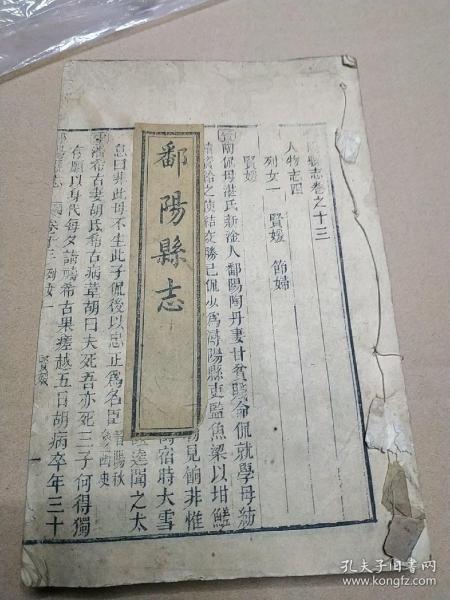 鄱陽縣志
縣志卷之十三
人物志四
列女一 賢媛 節婦
賢媛
陶侃母湛氏新淦人鄱陽陶丹妻甘貧賤命侃就學母紡
資給之使結交勝己侃少爲潯陽縣吏監魚梁以坩鮓
見餉非惟
宿時大雪
逵聞之太
息曰非此母不生此子侃後以忠正爲名臣晉陽秋
潘希古妻胡氏希古病革胡曰夫死吾亦死三子何得獨
存願以身代每夕請禱希古果瘥越五日胡病卒年三十
卷十三 列女一
賢媛
孔夫子旧书网
www.kongfz.com